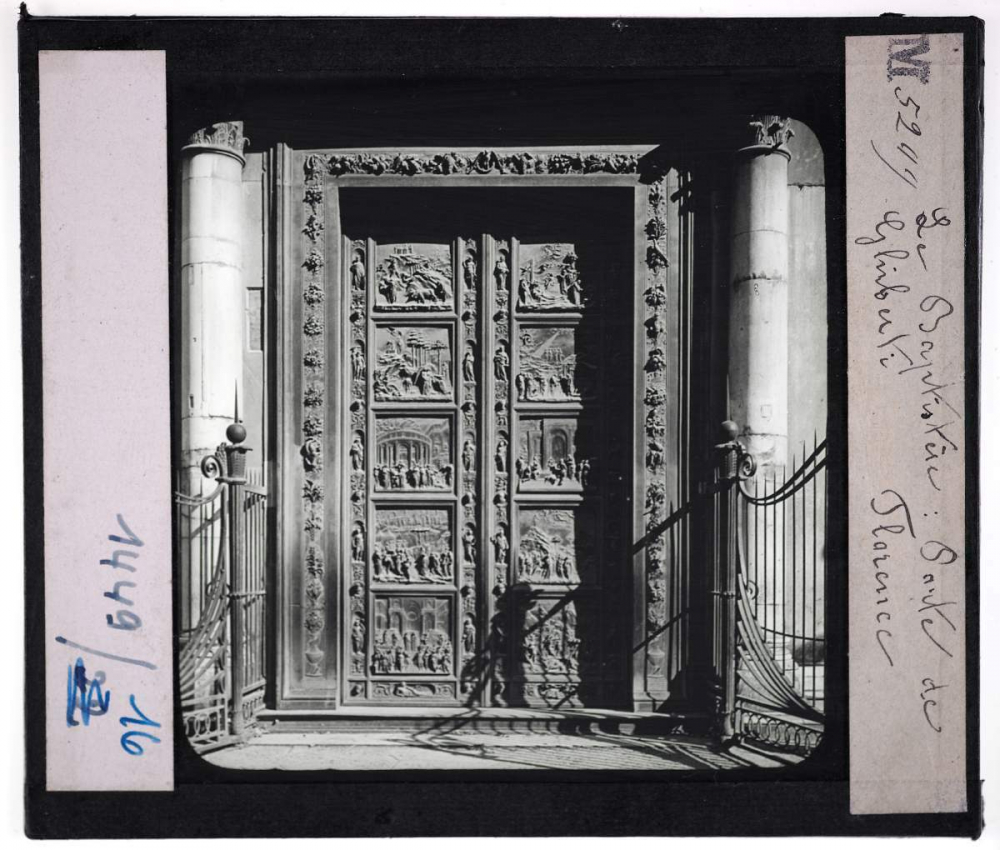 M 5299 Le Baptistère : Porte de
Ghiberti Florence
1449/16
IV